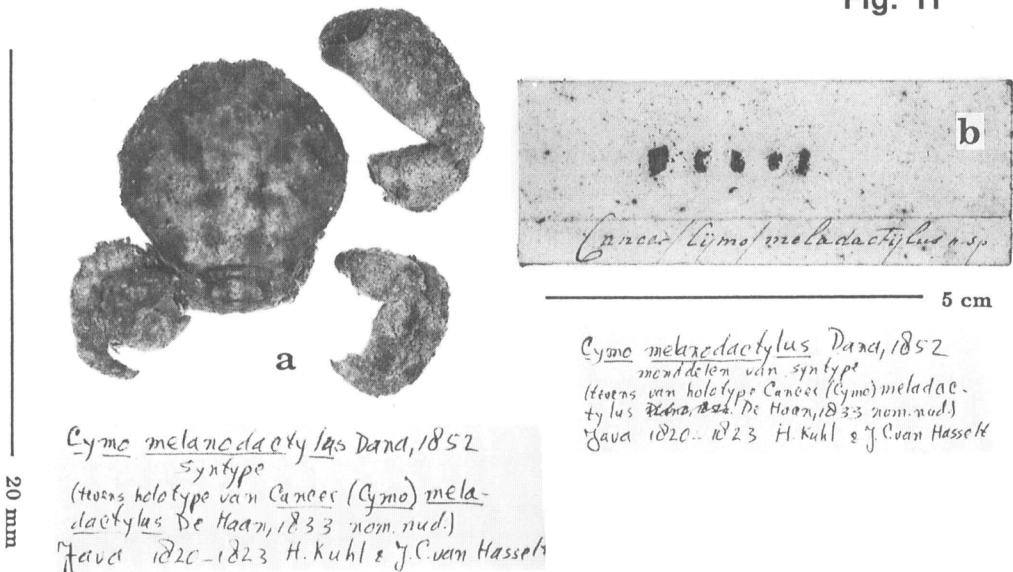 Fig. 11
a
20 mm
Cymo melanodactylus Dana, 1852
syntype
(tevens holotype van Cancer (Cymo) mela-
dactylus De Haan, 1833 nom. nud.)
Java 1820-1823 H. Kuhl & J.C. van Hasselt
b
Cancer (Cymo) meladactylus n. sp
5 cm
Cymo melanodactylus Dana, 1852
monddelen van syntype
(tevens van holotype Cancer (Cymo) meladac-
tylus De Haan, 1833 nom. nud.)
Java 1820-1823 H. Kuhl & J.C. van Hasselt